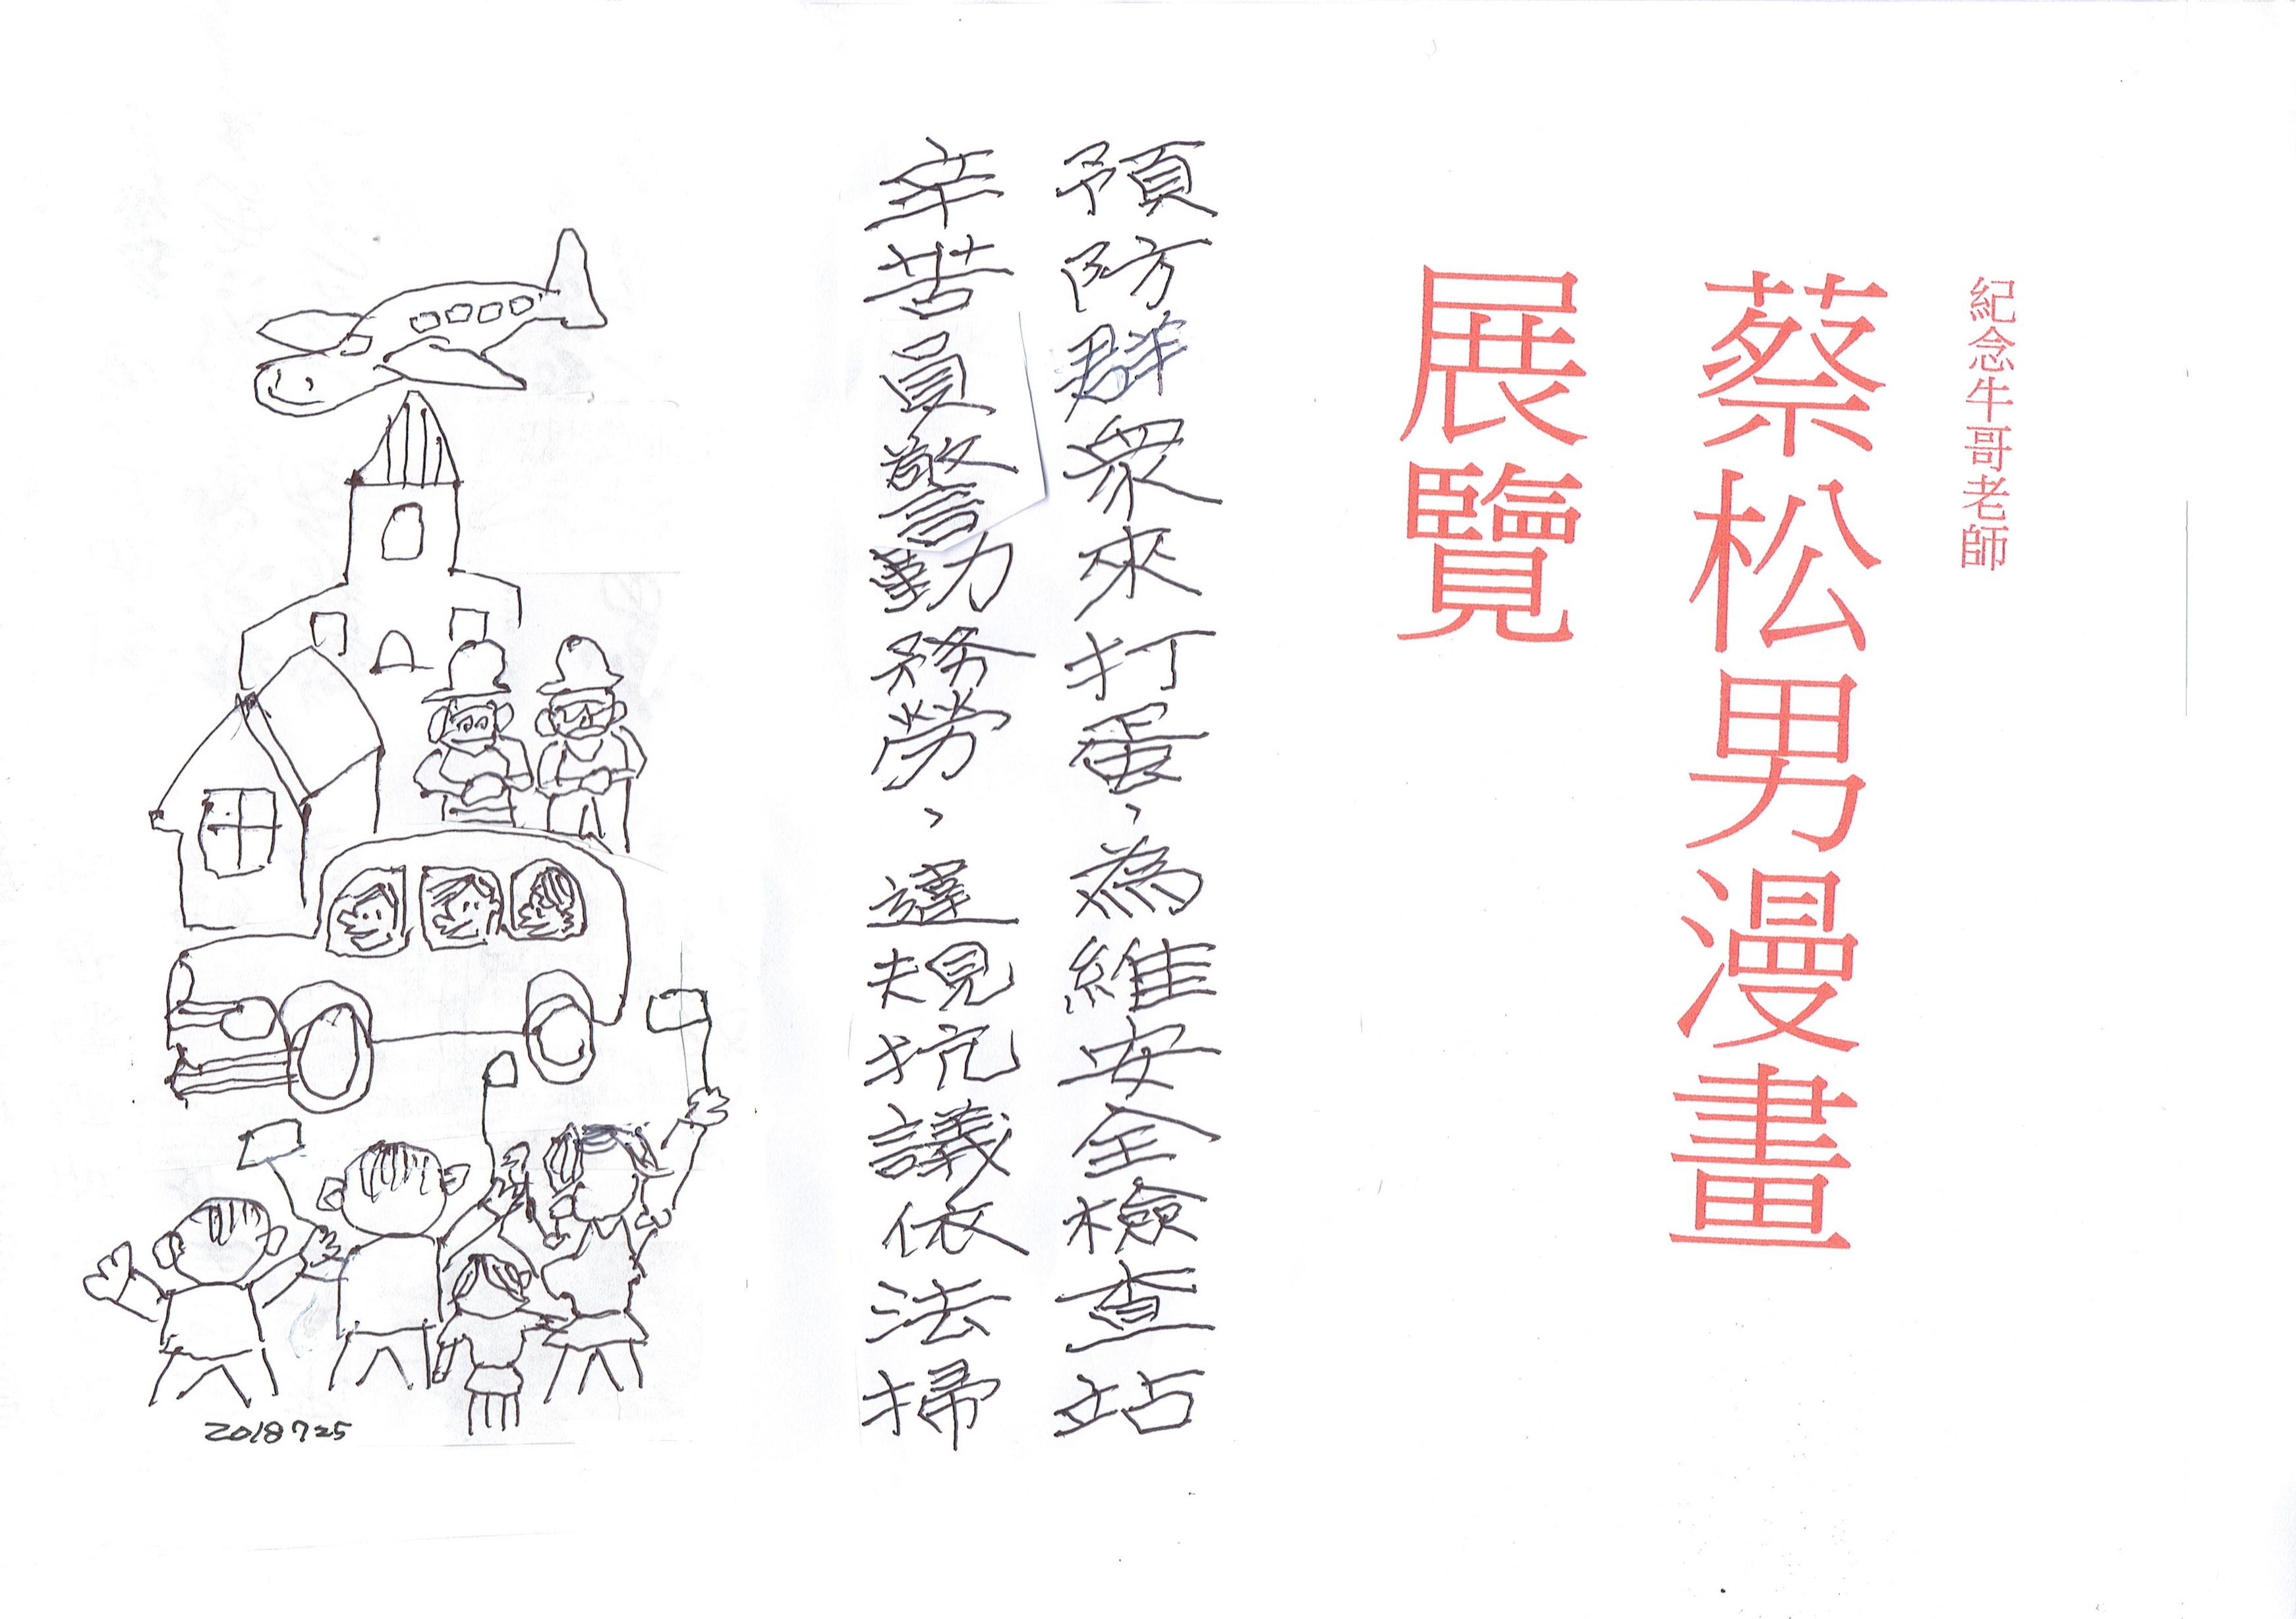 紀念牛哥老師
蔡松男漫畫
展覽
預防群眾來打蛋、為維安全檢查站
辛苦員警勤務勞、違規抗議依法掃
2018725